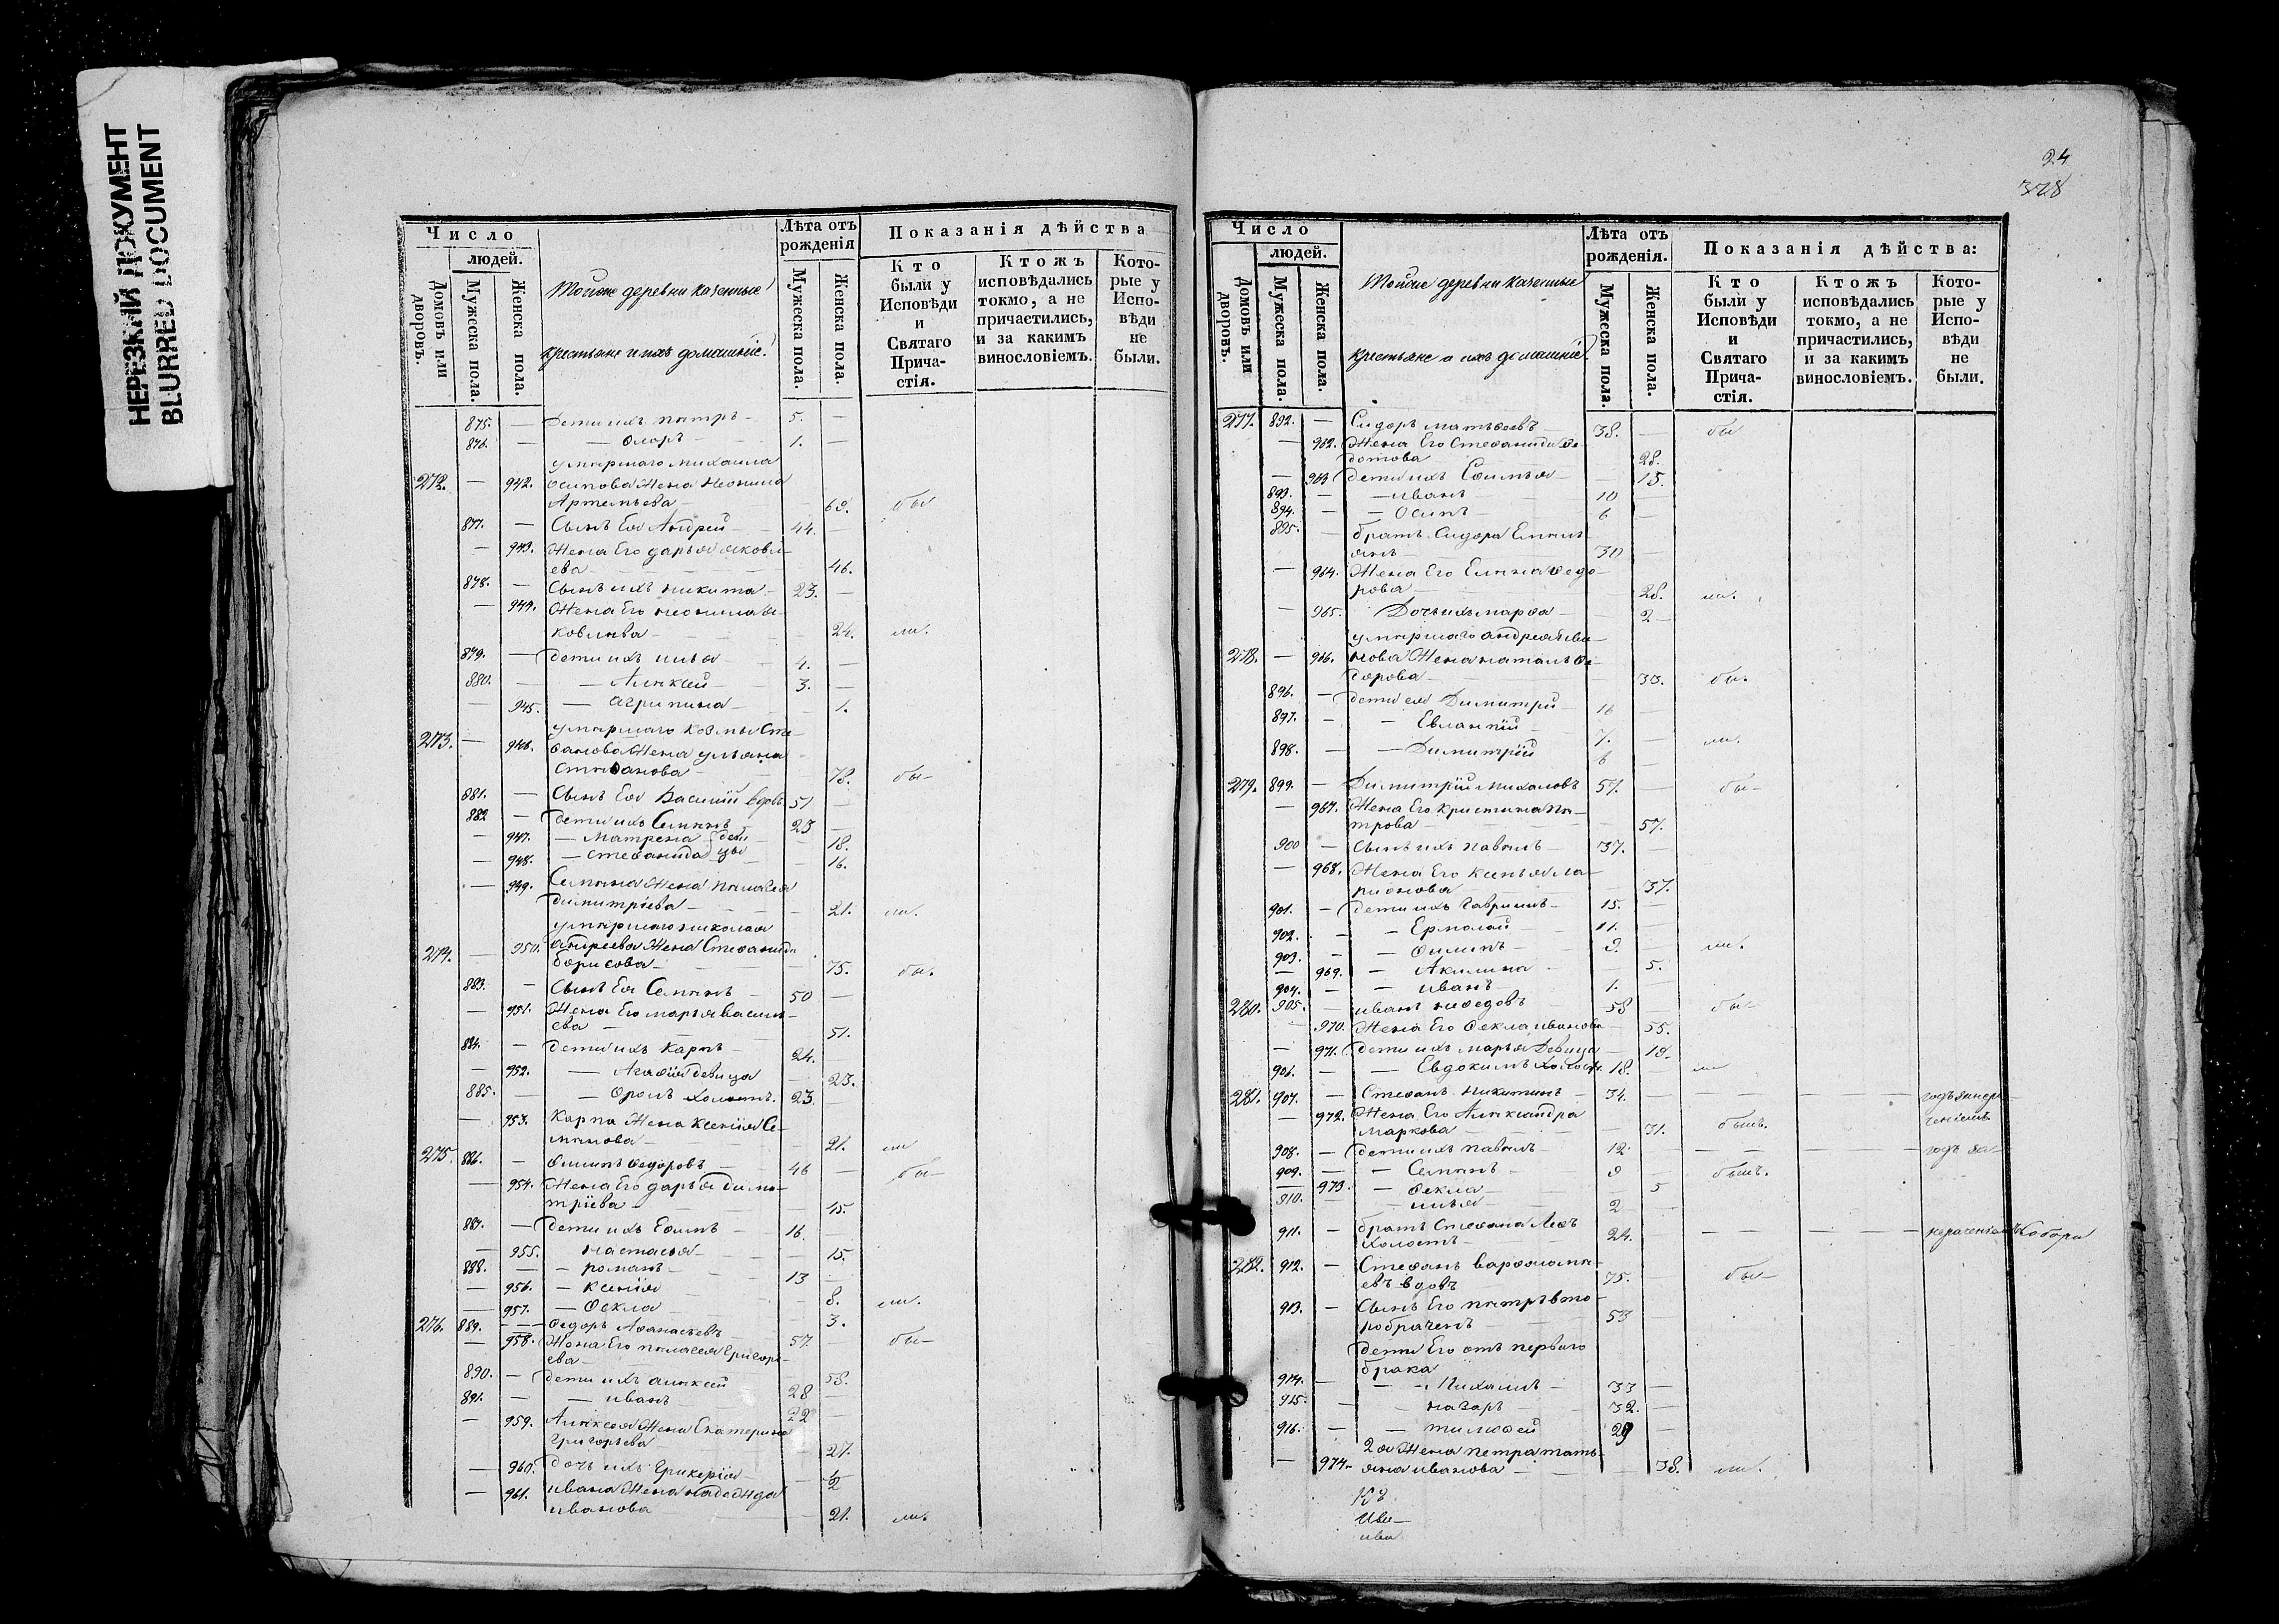 НЕРЕЗКИЙ ДОКУМЕНТ
BLURRED DOCUMENT
Число
людей.
Домовъ или дворовъ.
Мужеска пола.
Женска пола.
Тойже деревни казенные
крестьяне и ихъ домашніе.
Лѣта отъ рожденія
Мужеска пола.
Женска пола.
Показанія дѣйства
Кто были у Исповѣди и Святаго Причастія.
Ктожъ исповѣдались токмо, а не причастились, и за какимъ винословіемъ.
Которые у Исповѣди не были.
875. — Дети ихъ Петръ — 5. —
876. — — Флоръ — 1. —
умершаго Михаила
272. — 942. Осипова Жена Неонила
Артемьева — 69. бы
877. — Сынъ Ея Андрей — 44. —
— 943. Жена Его дарья яковл—
ева — 46.
878. — Сынъ ихъ Никита — 23. —
— 944. Жена Его неонила я—
ковлева — 24. ли.
879. — дети ихъ илья 4. —
880. — — Алексей — 3. —
— 945. — агрипина — 1.
умершаго Козмы Сте
273. — 946. фанова Жена ульяна
Стефанова — 78. бы—
881. — Сынъ Ея Василий вдовъ 51 —
882 — Дети ихъ Семенъ 23 —
— 947. — Матрена деви 18.
— 948. — Стефанида цы 16.
— 949. Семена Жена пелагея
димитріева — 21. ли.
умершаго николая
274. — 950. андреева Жена Стефанида
борисова — 75. бы.
883. — Сынъ Ея Семенъ — 50 —
— 951. Жена Его марья васил—
ева — 51.
884. — дети ихъ Карпъ — 24. —
— 952. — Агафія девица — 23.
885. — — Фролъ холостъ. 23. —
— 953. Карпа Жена Ксенія Се—
менова — 21. ли
275. 886. — Филипъ Федоровъ — 46 — бы—
— 954. Жена Его дарья дими—
тріева — 45.
887. — дети ихъ Ефимъ — 16. —
— 955. настасья — 15.
888. — — романъ — 13 —
— 956. — Ксенія 8. ли.
— 957. — Фекла 3.
276. 889. — Федоръ Афанасьевъ — 57. — бы—
— 958. Жена Его пелагея Григорь—
ева — 58.
890. — дети ихъ алексей 28 —
891. — — иванъ — 22 —
— 959. Алексея Жена Екатерина
Григорьева — 27.
— 960. дочь ихъ Гликерія — 1/2
— 961. ивана Жена надежда
иванова — 21. ли.
24
328
Число
людей.
Домовъ или дворовъ.
Мужеска пола.
Женска пола.
Тойже деревни казенные
крестьяне и ихъ домашніе
Лѣта отъ рожденія.
Мужеска пола.
Женска пола.
Показанія дѣйства:
Кто были у Исповѣди и Святаго Причастія.
Ктожъ исповѣдались токмо, а не причастились, и за какимъ винословіемъ.
Которые у Исповѣди не были.
277. 892. — Сидоръ матвеевъ 38. — бы
— 962. Жена Его Стефанида Фе
дотова 28.
— 963 дети ихъ Софья — 15.
893. — — иванъ — 10
894. — — Осипъ — 6 —
895. — братъ Сидора Емель
янъ — 30 —
— 964. Жена Его Елена Федо—
рова — 28. ли.
— 965. Дочь ихъ марфа — 2 —
умершаго андрея ива—
278. — 966. нова Жена наталья Фе—
дорова — 33. бы.
896. — дети ея Димитрій — 16 —
897. — — Евлампій 7. — ли.
898. — — Димитрій 6 —
279. 899. — Димитрій Михаловъ 57. — бы—
— 967. Жена Его Кристина Пе—
трова — 57.
900 — Сынъ ихъ павелъ — 37. —
— 968. Жена Его Ксенья ла
рионова — 37.
901. — дети ихъ Гаврилъ — 15. —
902. — — Ермолай — 11. —
903. — — Филипъ — 9. — ли.
— 969. — Акилина — 5.
904. — — иванъ — 1. —
280. 905. — иванъ нефедовъ 58 — бы—
— 970. Жена Его Фекла иванова — 55.
— 971. дети ихъ марья Девица — 19.
906. — — Евдокимъ холостъ. 18. — ли
281. 907. — Стефанъ никитинъ — 34. —
— 972. Жена Его Александра
маркова — 31. бывъ.
908. — дети ихъ павелъ — 12. —
909. — — Семенъ — 9 — бывъ.
— 973. — Фекла — 5
910. — — илья — 2 —
911. — братъ Стефана Левъ
холостъ — 24. —
282. 912. — Стефанъ варфоломе—
евъ вдовъ 75. — бы—
913. — Сынъ Его петръ вто—
робраченъ — 53 —
дети Его отъ перваго
брака
914. — — Михаилъ — 33 —
915. — — назаръ — 32. —
916. — — тимофей — 29 —
2я Жена петра тать
— 974. яна иванова — 38. ли.